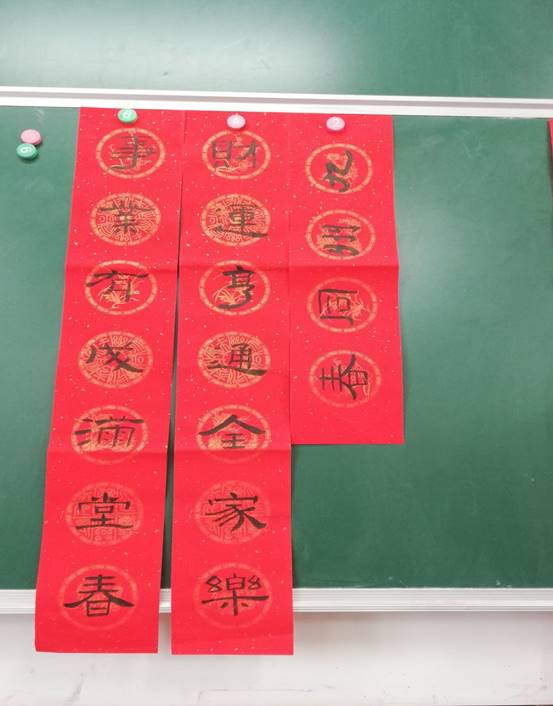 九州同春
財運亨通全家樂
事業有成滿堂春